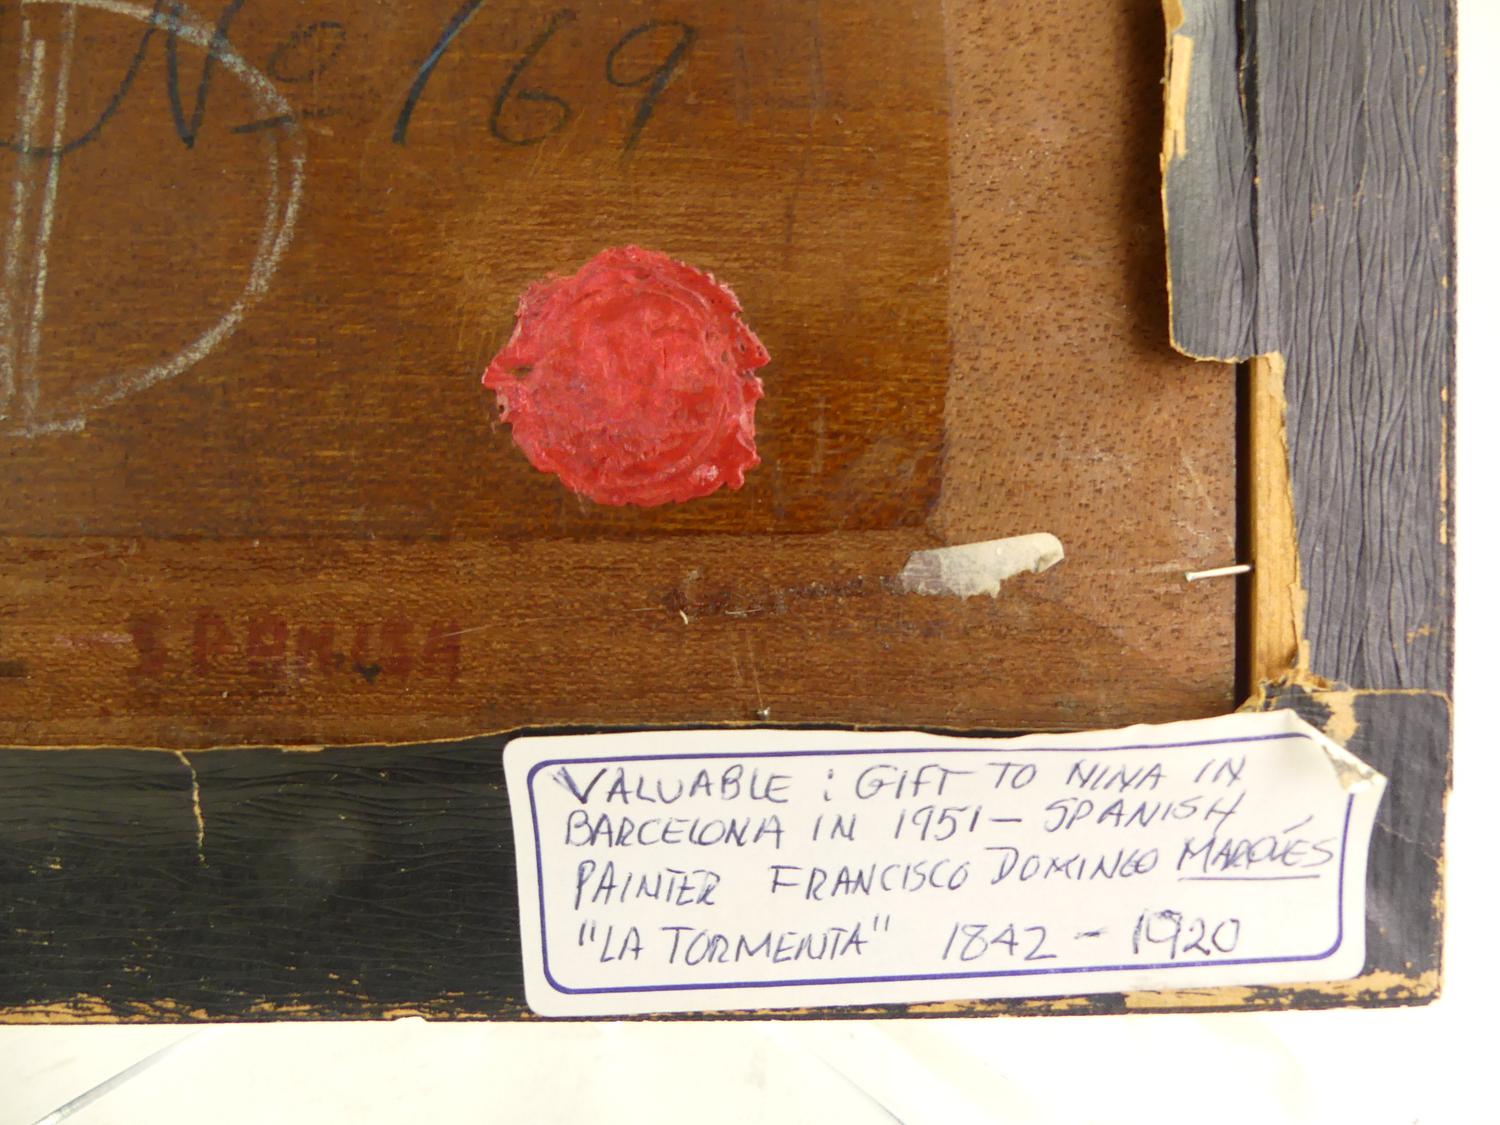 No 169
SPANISH
VALUABLE : GIFT TO NINA IN
BARCELONA IN 1951 - SPANISH
PAINTER FRANCISCO DOMINGO MARQUÉS
"LA TORMENTA" 1842 - 1920